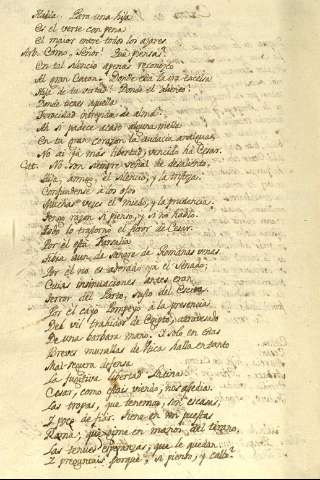 Habla. Pero una hija
Es el verse con pena
El maior entre todos los azares
Arb. Como, Señor! Qué piensas?
En tal silencio apenas reconozco
Al gran Caton. Donde está la ira excelsa
Hija de tu virtud? Donde el
Donde tienes aquella
Ferocidad intrepida de alma?
Ah si padece acaso alguna mella
En tu gran corazon la audacia antigua,
No ai ya más libertad, vencido há Cesar.
Cat. No son siempre señal de desaliento,
Hija, amigo, el silencio, y la tristeza.
Confundense à los ojos
Muchas veces el miedo, y la prudencia.
Tengo razon si pienso, y si no hablo.
Todo lo trastornó el furor de Cesar.
Por él está Farsalia
Tibia aun de sangre de Romanas venas.
Por él no es adorado ya el Senado,
Cuias insinuaciones antes eran
Terror del Parto, susto del
Por él cayó Pompeyo à la presencia
Del vil traidor de Egipto, atravesado
De una barbara mano. I solo en estas
Breves murallas de Utica halla en tanto
Mal segura defensa
La fugitiva libertad Latina.
Cesar, como estais viendo, nos asedia.
Las tropas, que tenemos, son escasas,
I poco de fiar. Tiene en mi puestas
Roma, que gime en manos del tirano,
Las tenues esperanzas, que le quedan...
I preguntais porqué, si pienso, y callo?